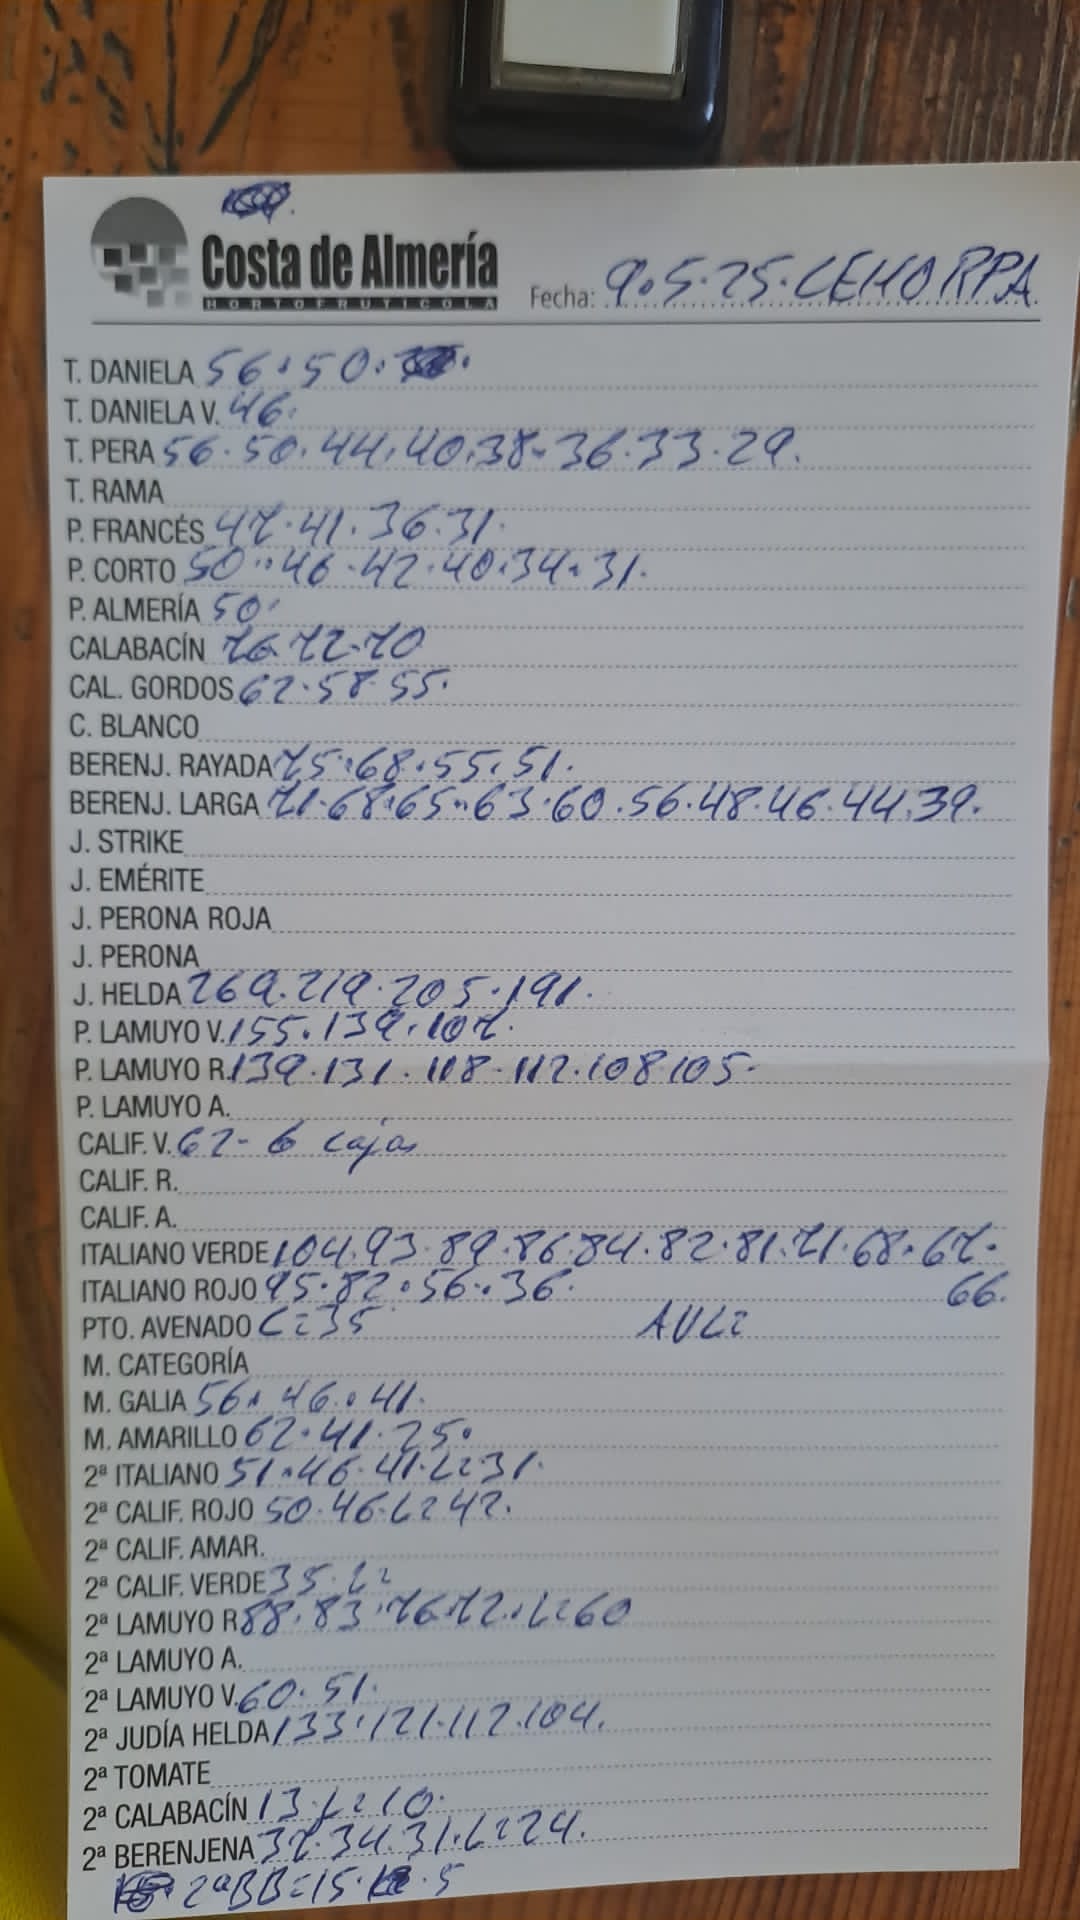 Costa de Almería
HORTOFRUTICOLA
Fecha: 9.5.25. CEHORPA
T. DANIELA 56.50.
T. DANIELA V. 46.
T. PERA 56.50.44.40.38.36.33.29.
T. RAMA
P. FRANCÉS 47.41.36.31.
P. CORTO 50.46.42.40.34.31.
P. ALMERÍA 50.
CALABACÍN 76.72.70
CAL. GORDOS 62.58.55.
C. BLANCO
BERENJ. RAYADA 75.68.55.51.
BERENJ. LARGA 71.68.65.63.60.56.48.46.44.39.
J. STRIKE
J. EMÉRITE
J. PERONA ROJA
J. PERONA
J. HELDA 269.219.205.191.
P. LAMUYO V. 155.139.107.
P. LAMUYO R. 139.131.118.112.108.105.
P. LAMUYO A.
CALIF. V. 62- 6 cajas
CALIF. R.
CALIF. A.
ITALIANO VERDE 104.93.89.86.84.82.81.71.68.67.
ITALIANO ROJO 95.82.56.36. 66.
PTO. AVENADO L=35
M. CATEGORÍA
M. GALIA 56.46.41.
M. AMARILLO 62.41.25.
2ª ITALIANO 51.46.41.L=31.
2ª CALIF. ROJO 50.46.L=42.
2ª CALIF. AMAR.
2ª CALIF. VERDE 35.L=
2ª LAMUYO R 88.83.76.72.L=60
2ª LAMUYO A.
2ª LAMUYO V. 60.51.
2ª JUDÍA HELDA 133.121.112.104.
2ª TOMATE
2ª CALABACÍN 13.L=10.
2ª BERENJENA 37.34.31.L=24.
2ªBB=15. .5